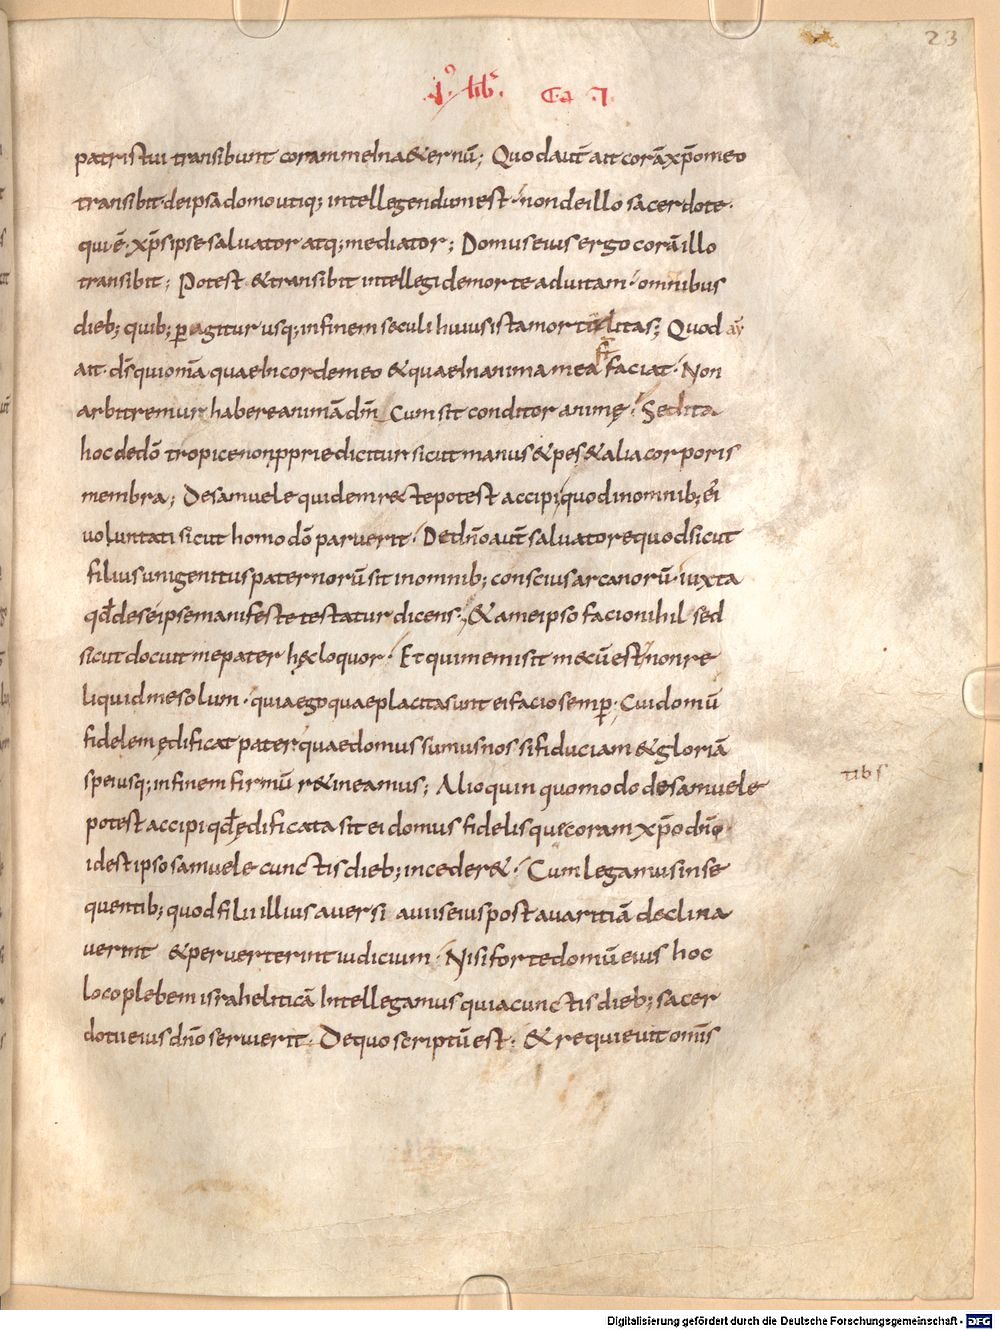 23
I° lib͛. Ca .I.
patristui transibunt coram me In aeternū; Quod aut̄ ait corā xp̄o meo
transibit. de ipsa domo utiq; intellegendum est. non de illo sacerdote.
qui ē. xp̄s ipse saluator atq; mediator; Domus eius ergo corā illo
transibit; Potest & transibit intellegi de morte ad uitam. omnibus
dieb; quib; ꝑagitur usq; in finem seculi huius ista mortalitas; Quod
ait. d̄s qui om̄a quae In corde meo & quae In anima mea s̄t faciat. Non
arbitremur habere animā dm̄ Cum sit conditor animę. Sed ita
hoc de dō tropice non ꝓprie dicitur sicut manus & pes & alia corporis
membra; De samuele quidem recte potest accipi quod in omnib; ei
uoluntati sicut homo dō paruerit. De dn̄o aut̄ saluatore quod sicut
filius unigenitus paternorū sit in omnib; conscius arcanorū. iuxta
qd̄ de se ipse manifeste testatur dicens; & a me ipso facio nihil sed
sicut docuit me pater hęc loquor. Et qui me misit mecū est non re
liquid me solum. quia ego quae placita sunt ei facio semꝑ. Cui domū
fidelem ędificat pater quae domus sumus nos si fiduciam & gloriā
spei usq; in finem firmū retineamus; Alioquin quomodo de samuele
tibs
potest accipi qd̄ ędificata sit ei domus fidelis que coram xp̄o dn̄o.
id est ipso samuele cunctis dieb; incederet. Cum legamus in se
quentib; quod filii illius auersi a uiis eius post auaritiā declina
uerint & peruerterint iudicium. Nisi forte domū eius hoc
loco plebem israheliticā Intellegamus quia cunctis dieb; sacer
dotii eius dn̄o seruierit. De quo scriptū est. & requieuit om̄is
Digitalisierung gefördert durch die Deutsche Forschungsgemeinschaft - DFG